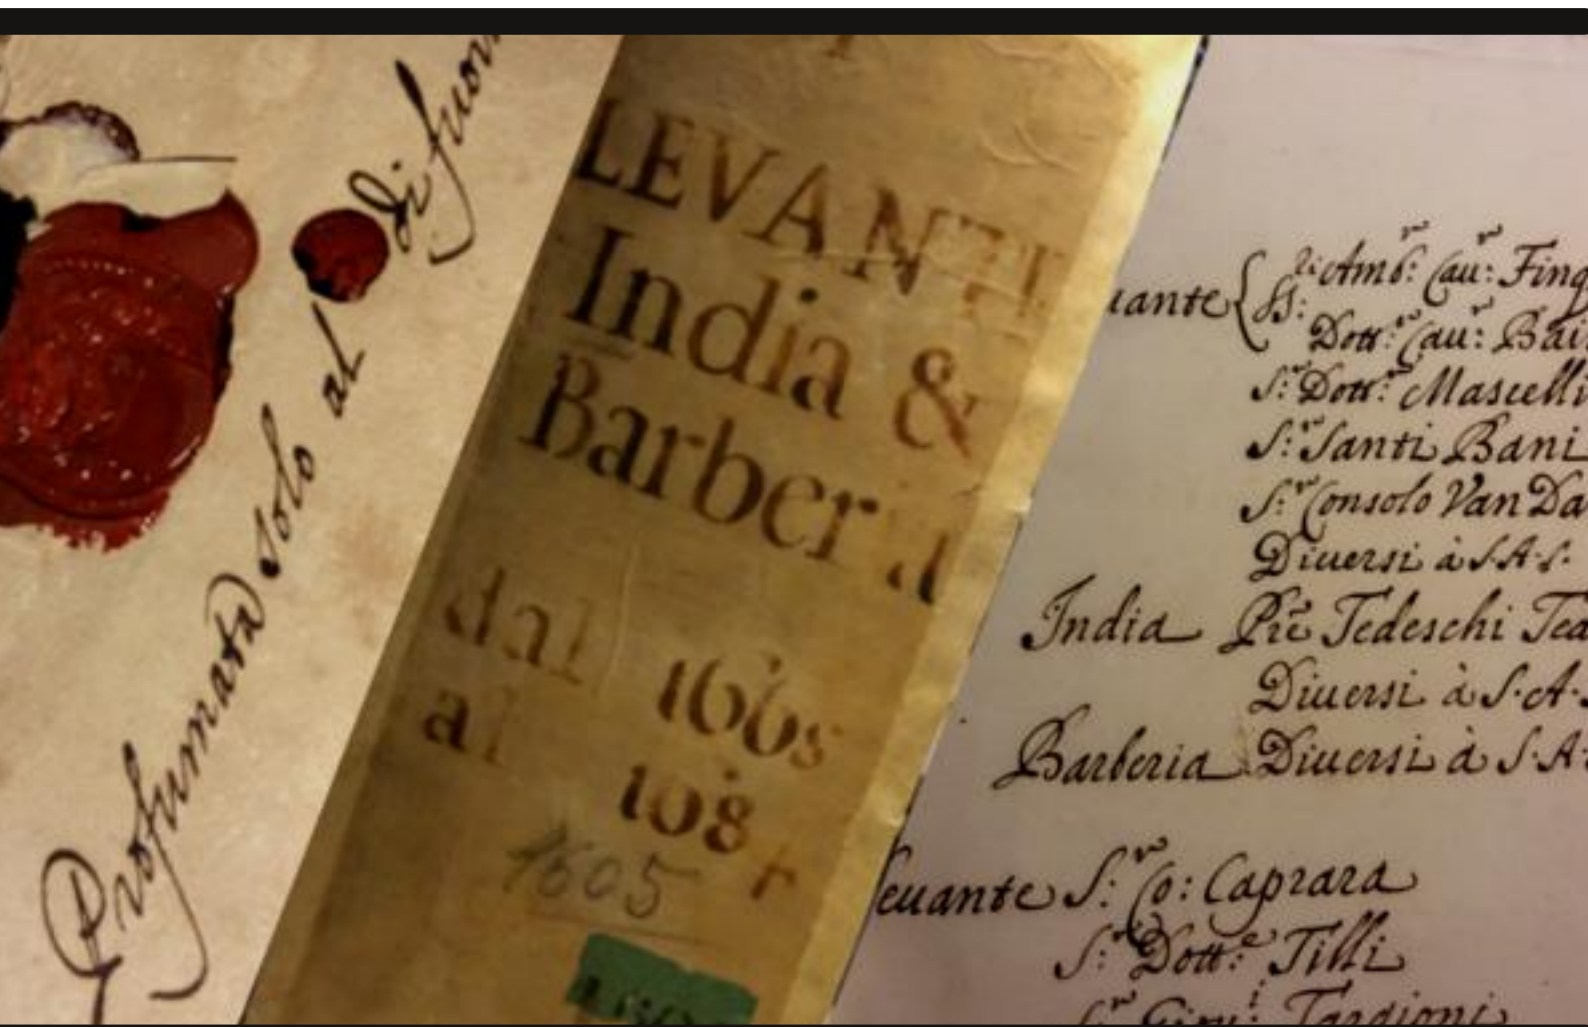 Profumata solo al di fuori
LEVANTE
India &
Barberia
dal 1665
al
1605
uante { SS:ri Amb:r Cau:r Finq
Dott:r Cau:r Bai
S:r Dott:r Mascelli
S:r Santi Bani
S:r Consolo Van Da
Diuersi à S.A.S.
India Pre Tedeschi Ted
Diuersi à S.A.
Barberia Diuersi à S.A.
euante S:r Co: Caprara
S:r Dott:e Tilli
S:r Giou:i Targioni